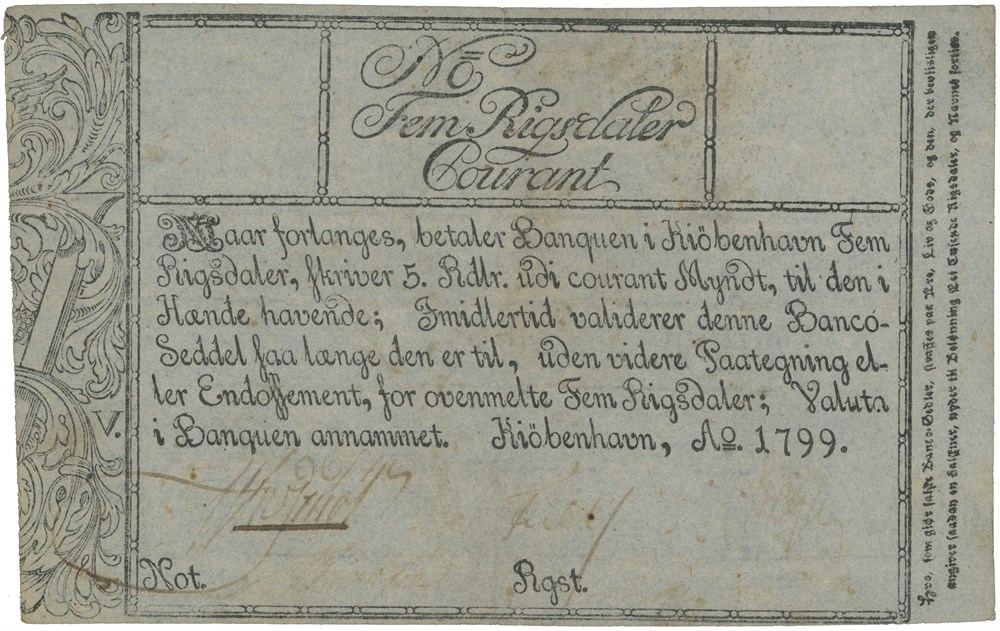 No
Fem Rigsdaler
Courant
Naar forlanges, betaler Banquen i Kiöbenhavn Fem
Rigsdaler, skriver 5. Rdlr. udi courant Myndt, til den i
Hænde havende; Imidlertid validerer denne Banco-
Seddel saa længe den er til, uden videre Paategning el-
ler Endossement, for ovenmelte Fem Rigsdaler; Valuta
i Banquen annammet. Kiöbenhavn, Ao. 1799.
V.
Not. Rgst.
Hvo, som giør falske Banco-Sedler, straffes paa Ære, Liv og Gods, og den, der
angiver saadan en Falskner, nyder til Belønning Eet Tusinde Rigsdaler, og Navnet forties.